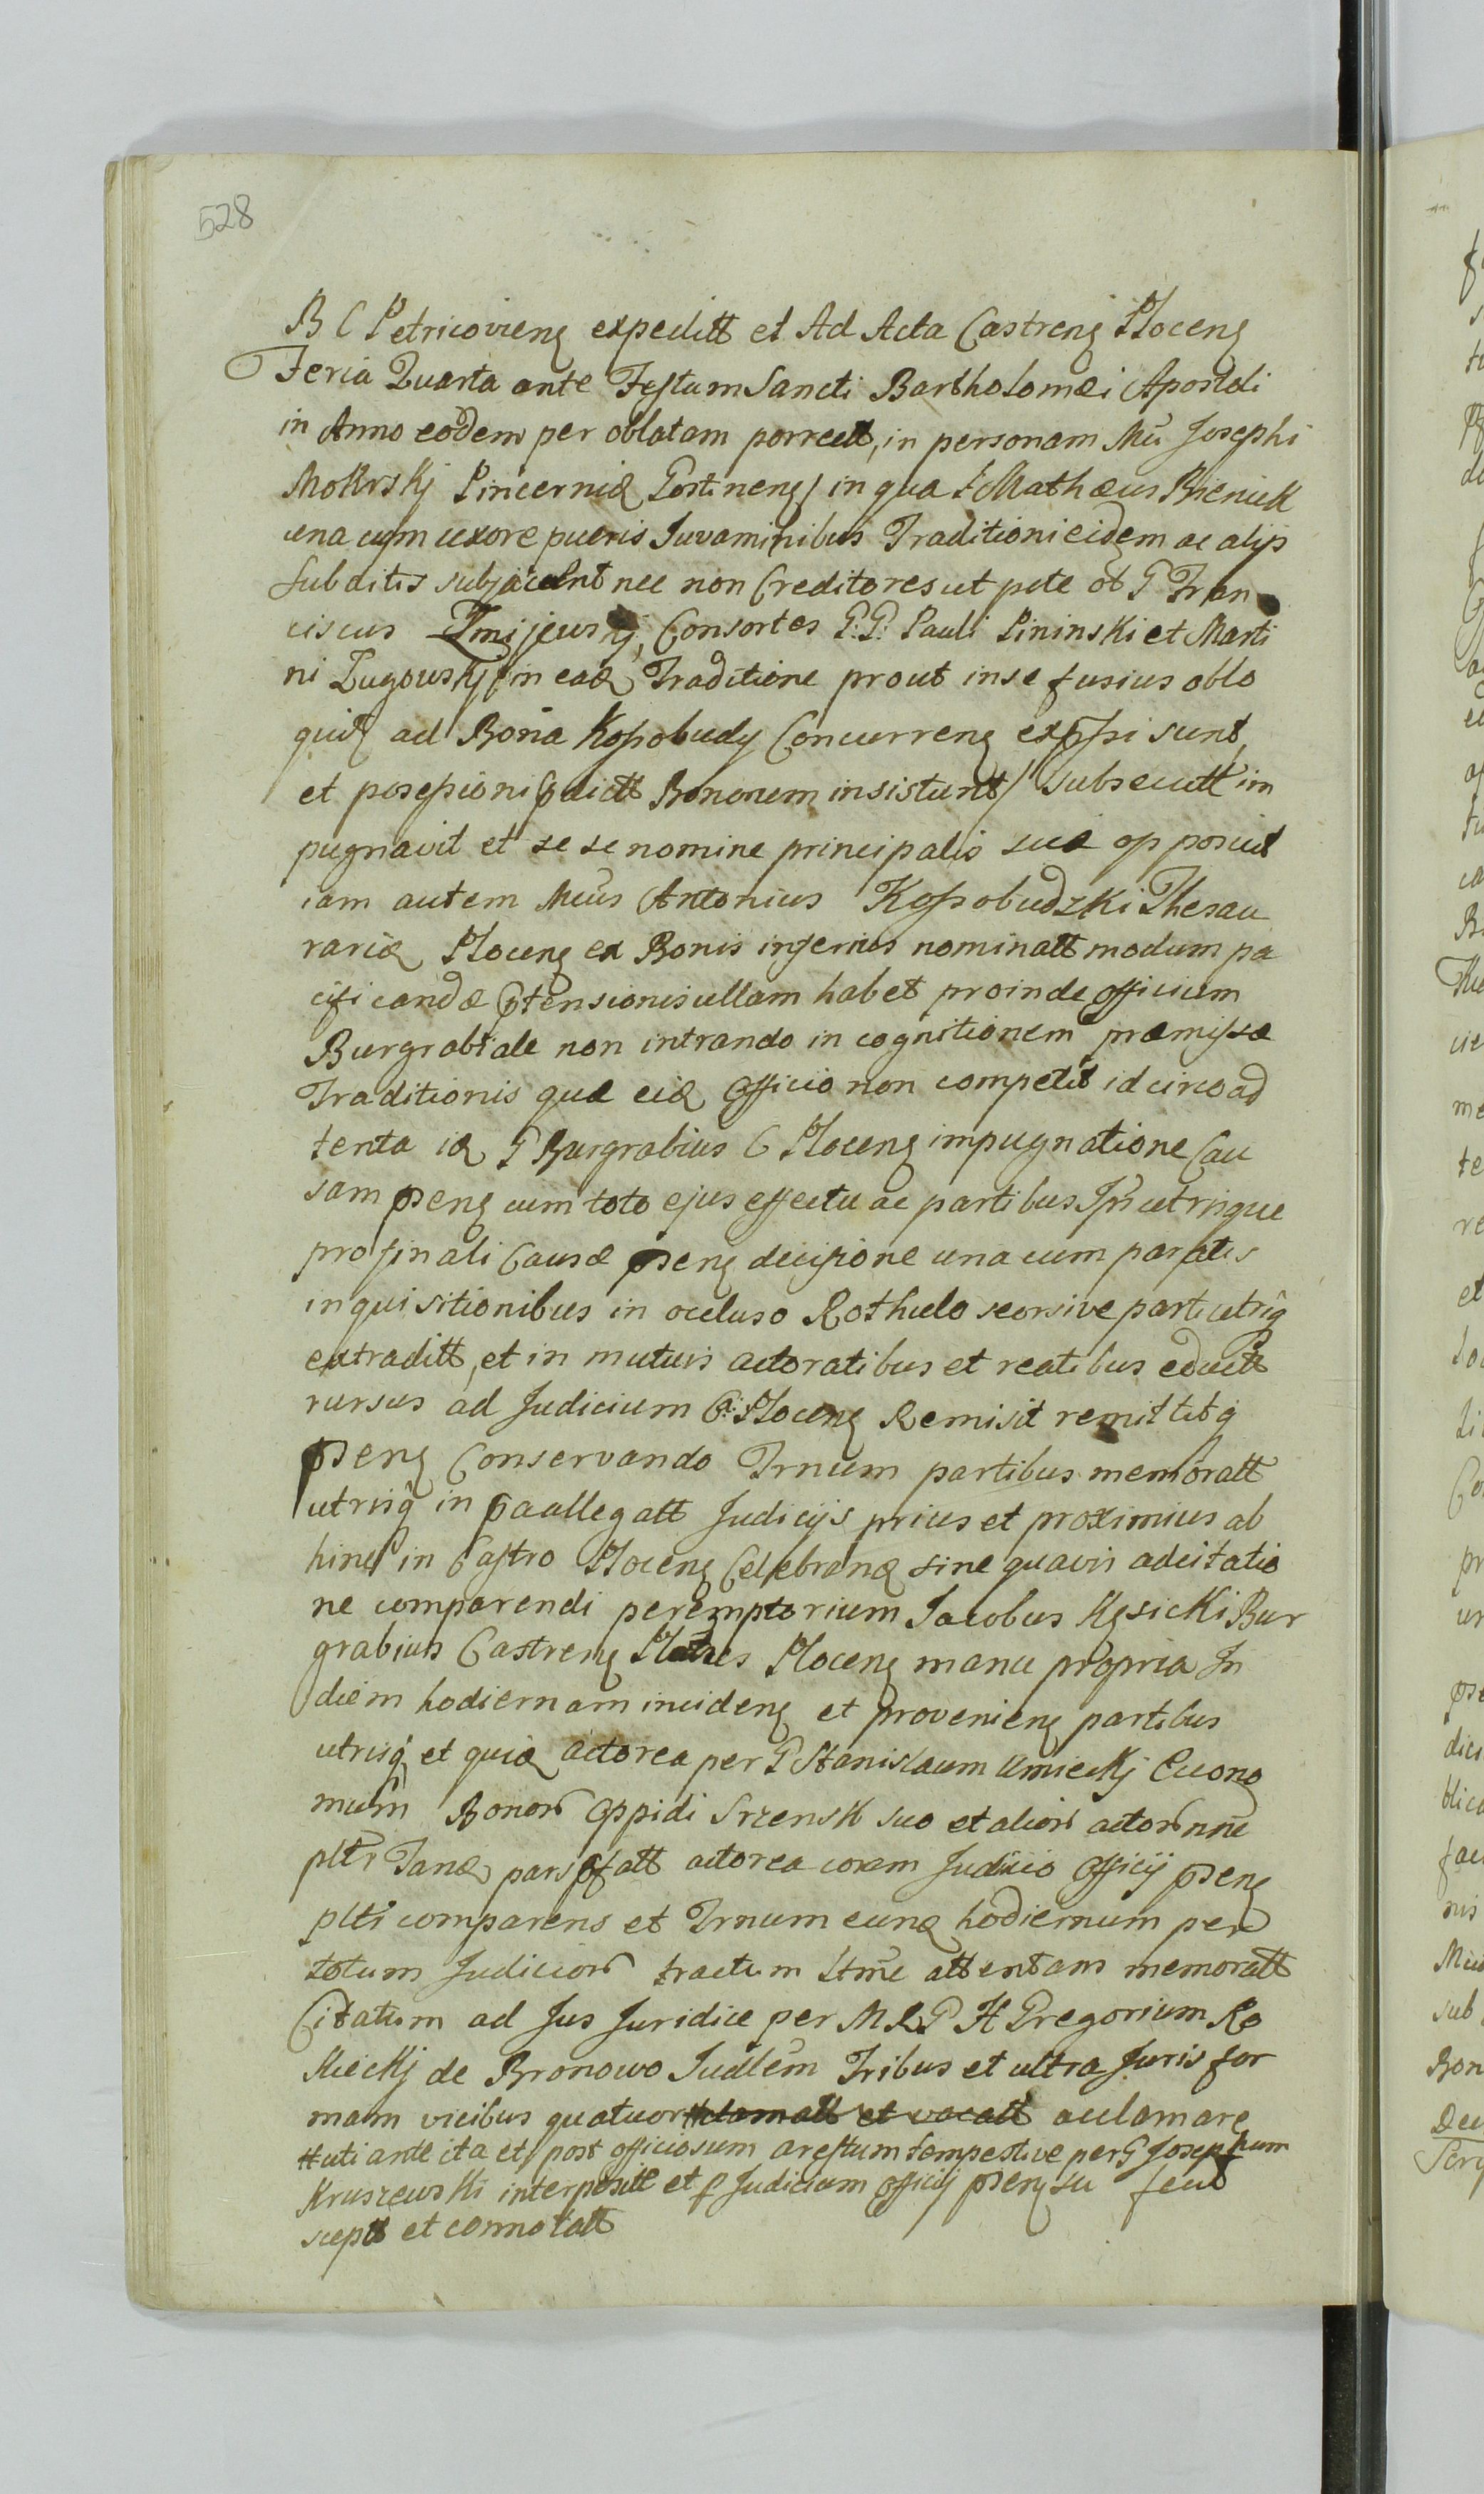 528
B C Petricovieng expeditt et Ad Acta Castreng Ploceng
Feria Quarta ante Festum Sancti Bartholomæi Apostoli
in Anno eodem per oblatam porrectt, in personam Mci Josephi
Mokrskj Pincernid Gostineng / in qua L Mathæus Bieniek
una cum uxore pueris Juvaminibus Traditioni eidem ac alijs
Subditis subjacent nec non Creditores ut pote ol G Fran
ciscus Zmijewskj, Consortes G: G: Pauli Pininski et Marti
ni Zugowskj in ead Traditione prout in se fusius oblo
quit ad Bona Kossobudy Concurreng expssi sunt,
et posessioni pdictt Bonorum insistunt / subsecutt im
pugnavit et se se nomine principalis sui opposuit
iam autem Mcus Antonius Kossobudzki Thesau
rarid Ploceng ex Bonis inferius nominatt modum pa
cificandæ ptensionis ullam habet proinde officium
Burgrabiale non intrando in cognitionem præmissæ
Traditionis quæ eid Officio non competit id circo ad
tenta id G Burgrabius C Ploceng impugnatione Cau
sam pseng cum toto ejus effectu ac partibus Ipsi utrisque
pro finali Causæ pseng decisione una cum paratis
inquisitionibus in ocluso Rothulo seorsive parti utriq
extraditt, et in mutuis actoratibus et reatibus eductt
rursus ad Judicium C: Ploceng Remisit remittitq
pseng Conservando Trnum partibus memoratt
utrisq in paallegatt Judicijs prius et proximius ab
hinc in Castro Ploceng Celebrand sine quavis adcitatio
ne comparendi peremptorium Jacobus Kęsicki Bur
grabius Castreng Ploceng manu propria In
diem hodiernam incideng et provenieng partibus
utrisq et quid actorea per G Stanislaum Umieckj Œcono
mum Bonor Oppidi Srzensk suo et alior actor nne
plti Tand pars pfatt actorea coram Judicio Officij pseng
plti comparens et Trnum eund hodiernum per
totum Judicior tractum ltme attentans memoratt
Citatum ad Jus Juridice per M R G H Gregorium Ro
kickj de Bronowo Judlem Tribus et ultra Juris for
mam vicibus quatuor clamatt et vocatt aclamare
uti ante ita et post officiosum arestum tempestive per G Josephum
Kruszewski interpositt et p Judicium Officij pseng su fecit
sceptt et connotatt